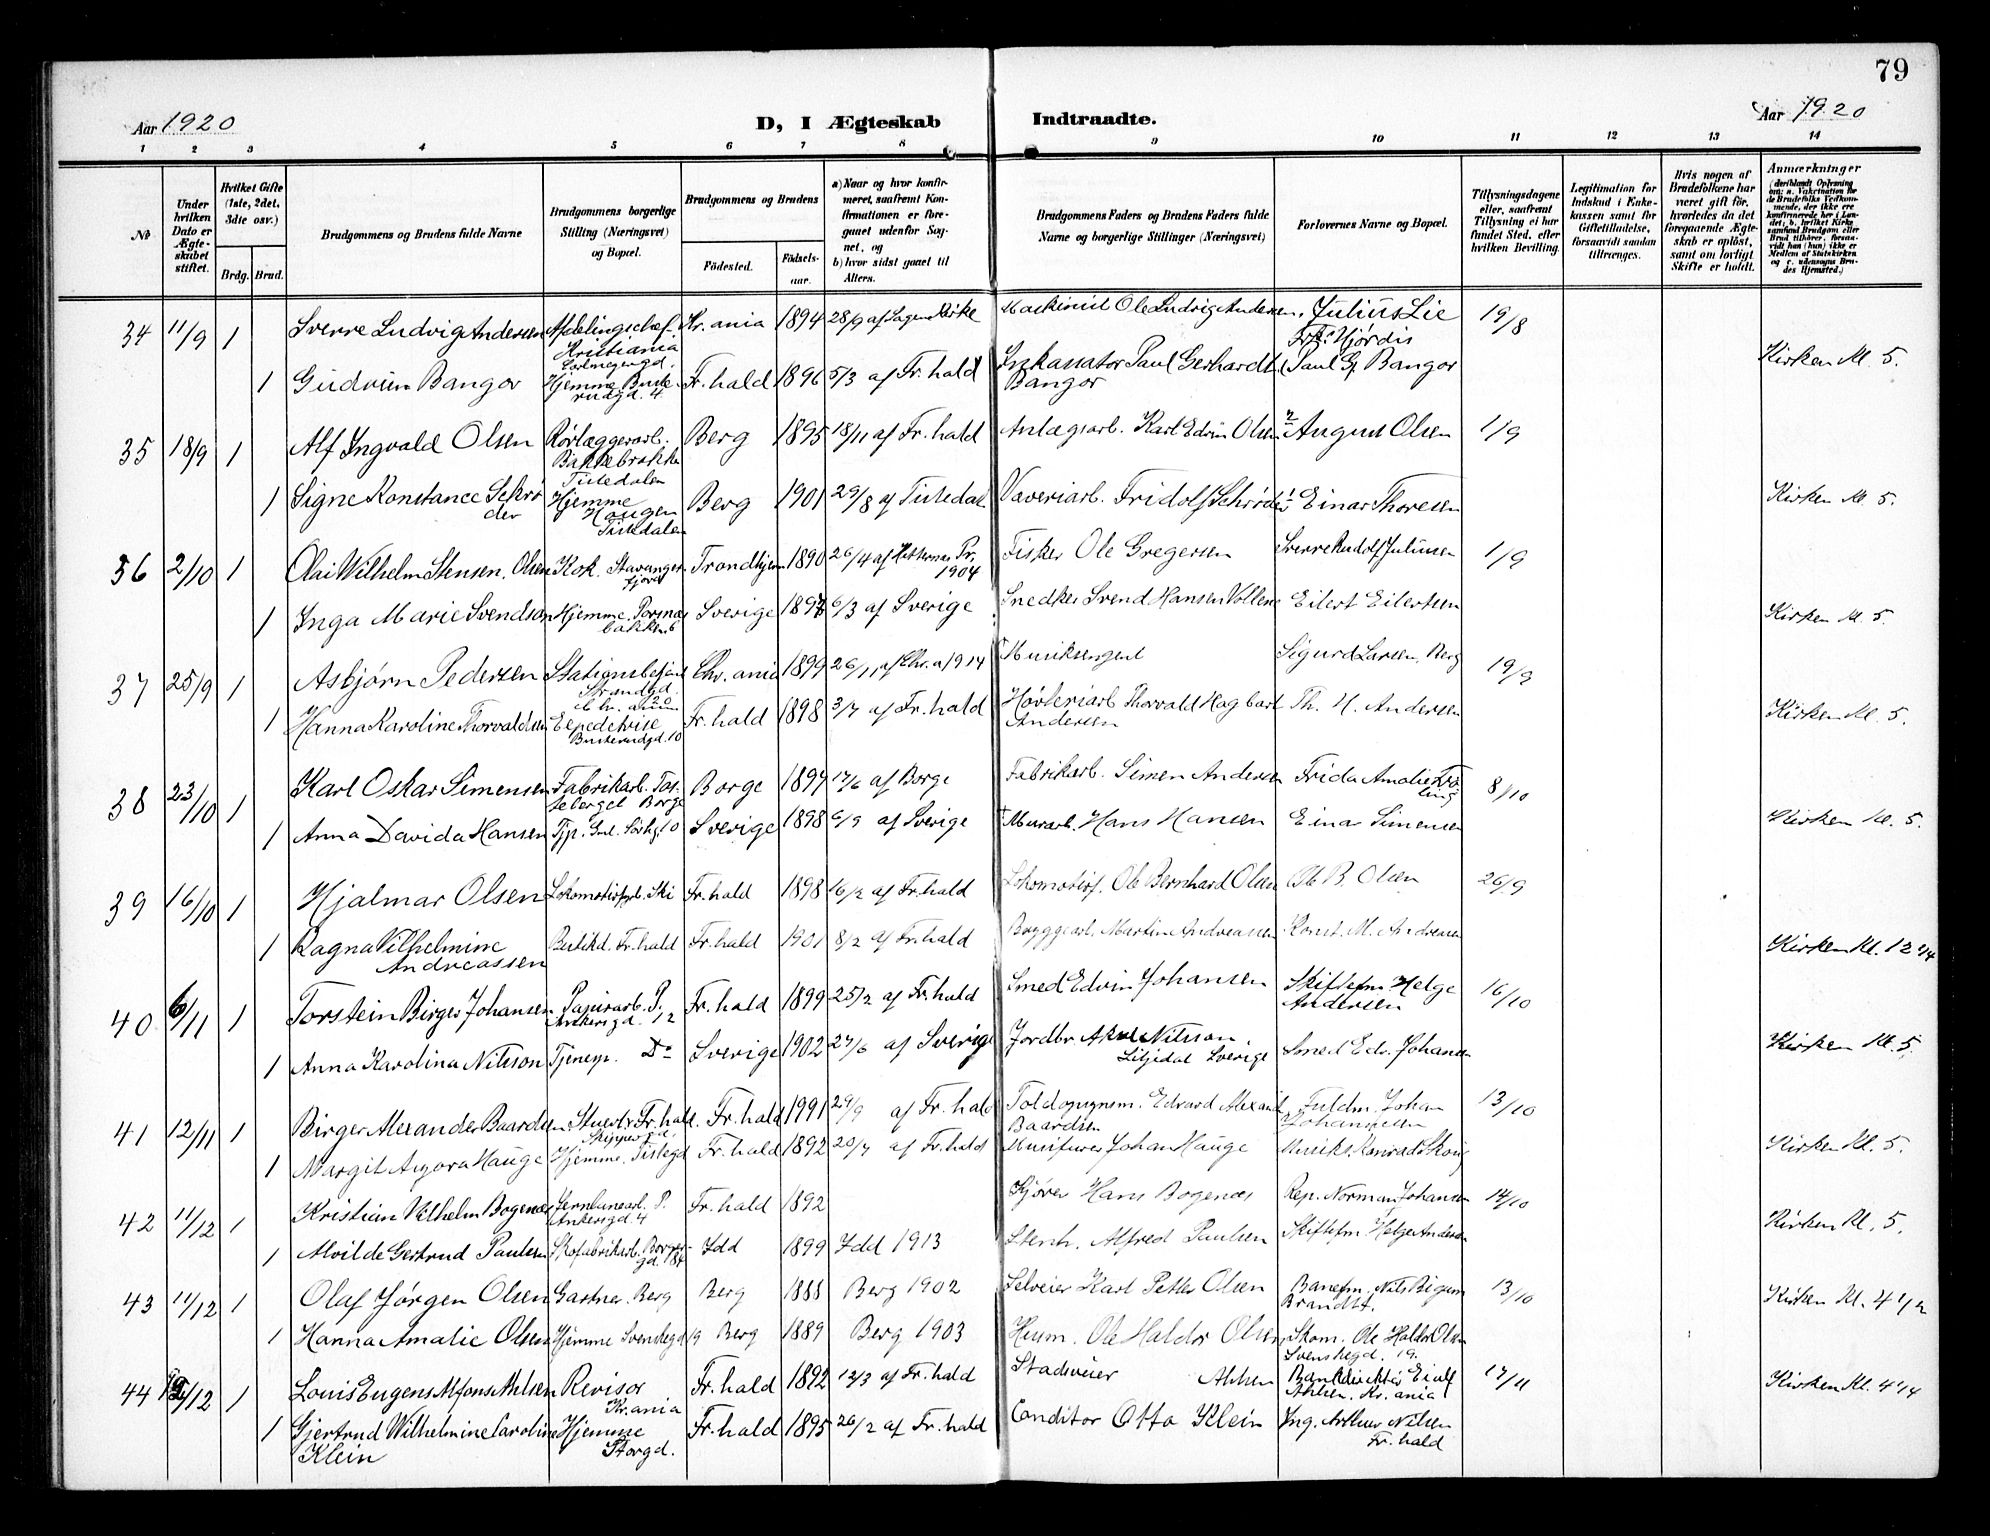 79
Aar 1920
D, I Ægteskab Indtraadte.
Aar 1920
1 2 3 4 5 6 7 8 9 10 11 12 13 14
№
Under hvilken Dato er Ægteskabet stiftet.
Hvilket Gifte (1ste, 2det, 3dte osv.)
Brdg. Brud.
Brudgommens og Brudens fulde Navne
Brudgommens borgerlige Stilling (Næringsvei) og Bopæl.
Brudgommens og Brudens
Fødested.
Fødsels-aar.
a) Naar og hvor konfirmeret, saafremt Konfirmationen er foregaaet udenfor Sognet, og
b) hvor sidst gaaet til Alters.
Brudgommens Faders og Brudens Faders fulde Navne og borgerlige Stillinger (Næringsvei)
Forlovernes Navne og Bopæl.
Tillysningsdagene eller, saafremt Tillysning ei har fundet Sted, efter hvilken Bevilling.
Legitimation for Indskud i Enkekassen samt for Giftetilladelse, forsaavidt saadan tiltrænges.
Hvis nogen af Brudefolkene har været gift før, hvorledes da det foregaaende Ægteskab er opløst, samt om lovligt Skifte er holdt.
Anmærkninger
34 11/9 1 Sverre Ludvig Andersen Afdelingschef Kristiania Kr.ania 1894 28/9 af Kirke Maskinist Ole Ludvig Andersen Julius Lie 19/8
1 Gudrun Bangor Hjemme Buskerudgd. 4 Fr.hald 1896 5/3 af Fr.hald Inkassator Paul Gerhardt Bangor Paul G. Bangor Kirken kl. 5.
35 18/9 1 Alf Ingvald Olsen Rørlæggerarb. Bakkebrakke Tistedalen Berg 1895 18/11 af Fr.hald Anlægsarb. Karl Edvin Olsen August Olsen 1/9
1 Signe Konstance Schrøder Hjemme Haugen Tistedalen Berg 1901 29/8 af Tistedal Væveriarb. Fridolf Schrøder Einar Thoresen Kirken kl. 5.
36 2/10 1 Olai Wilhelm Stensen Olsen Kok. Stavangerfjord Trondhjem 1890 26/4 af Pr. 1904 Fisker Ole Gregersen Sverre Rudolf Juliussen 1/9
1 Inga Marie Svendsen Hjemme. Sverige 6/3 af Sverige Snedker Svend Hansen Vollene Eilert Eilertsen Kirken kl. 5.
37 25/9 1 Asbjørn Pedersen Strandgd. 20 Chr.ania 1899 26/11 af Chr.a 1914 † Musiksergent Sigurd Larsen, Berg 19/9
1 Hanna Karoline Thorvaldsen Buskerudgd. 10 Fr.hald 1898 3/7 af Fr.hald Høvleriarb Thorvald Hagbart Andersen Th. H. Andersen Kirken kl. 5.
38 23/10 1 Karl Oskar Simensen Fabrikarb. Borge Borge 1897 17/6 af Borge Fabrikarb. Simen Andersen Frida Amalie 8/10
1 Anna Davida Hansen Sverige 1898 6/9 af Sverige † Murarb. Hans Hansen Einar Simensen Kirken kl. 5.
39 16/10 1 Hjalmar Olsen Ski Fr.hald 1898 16/2 af Fr.hald Lokomotivf. Ole Bernhard Olsen Ole B. Olsen 26/9
1 Ragna Vilhelmine Andreassen Butikd. Fr.hald Fr.hald 1901 8/2 af Fr.hald Bryggearb. Martin Andreassen Konst. M. Andreassen Kirken kl. 12 1/4
40 6/11 1 Torstein Birger Johansen Papirarb. P. Ankersgd. 12 Fr.hald 1899 25/2 af Fr.hald Smed Edvin Johansen Skiftefm Helge Andersen 16/10
1 Anna Karolina Nilsson Tjenep. Do Sverige 1902 27/6 af Sverige Jordbr. Aksel Nilsson. Liljedal Sverige Smed Edv. Johansen Kirken kl. 5.
41 12/11 1 Birger Alexander Baardsen Stuert Fr.hald. Fr.hald 1991 29/9 af Fr.hald Toldopsynsm. Edvard Alexander Baardsen Fuldm. Johan Johannesen 13/10
1 Margit Aurora Hauge Hjemme. Tistegd Fr.hald 1892 20/7 af Fr.hald Johan Hauge Musiks. Konrad Skoug Kirken kl. 5.
42 11/12 1 Kristian Vilhelm Bogenæs Jernbanearb. P. Ankersgd. 4 Fr.hald 1892 Kjører Hans Bogenæs Rep. Norman Johansen 14/10
1 Alvilde Gertrud Paulsen Skofabrikarb. Idd 1899 Idd 1913 Stenh. Alfred Paulsen Skiftefm Helge Andersen Kirken kl. 5.
43 11/12 1 Olaf Jørgen Olsen Gartner. Berg Berg 1888 Berg 1902 Selveier Karl Petter Olsen Banefm. Nils Bigum Brandst. 13/10
1 Hanna Amalie Olsen Hjemme Svenskegd 19 Berg 1889 Berg 1903 Husm. Ole Haldor Olsen Skom. Ole Haldor Olsen Svenskegd. 19. Kirken kl. 4 1/2
44 /12 1 Louis Eugens Alfons Ahlsen Revisor Kr.ania Fr.hald 1892 12/3 af Fr.hald Stadsveier Ahlsen Bankdirektør Eiulf Ahlsen. Kr.ania 17/11
1 Gjertrud Wilhelmine Caroline Klein Hjemme Storgd. Fr.hald 1895 26/2 af Fr.hald Conditor Otto Klein Ing. Arthur Nilsen Fr.hald Kirken kl. 4 1/4